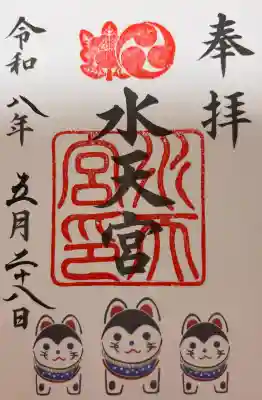 奉拝
水天宮
水天宮印
令和八年五月二十八日